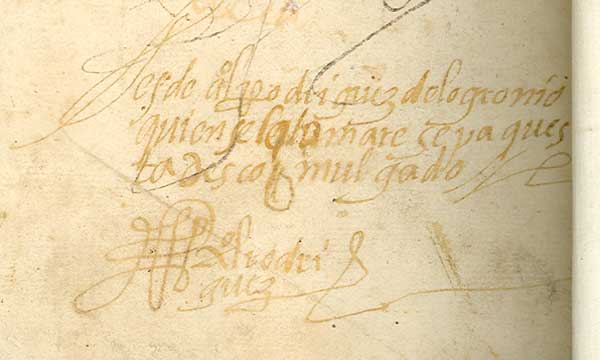 es de al rodriguez de logroño
quien se lo hurtare sepa ques
ta descomulgado
rodri
guez